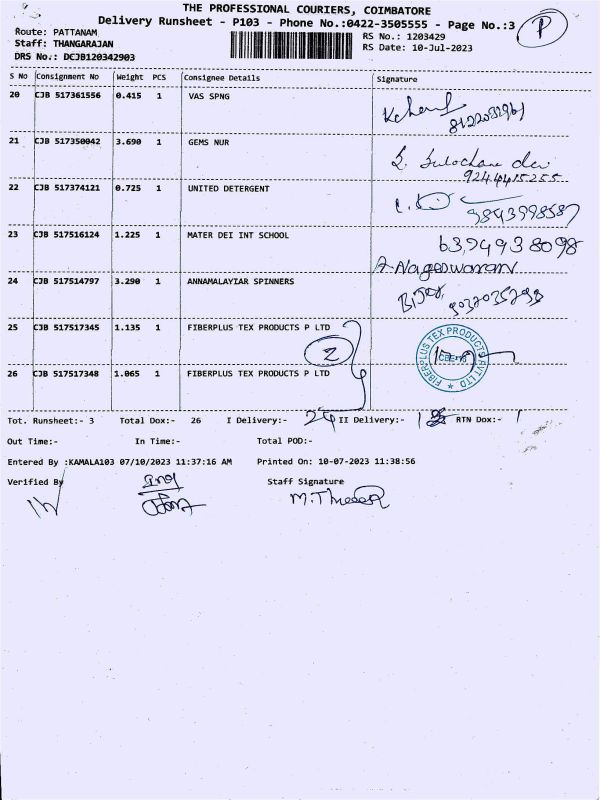 THE PROFESSIONAL COURIERS, COIMBATORE
Delivery Runsheet - P103 - Phone No.:0422-3505555 - Page No.:3
P
Route: PATTANAM
RS No.: 1203429
Staff: THANGARAJAN
RS Date: 10-Jul-2023
DRS No.: DCJB120342903
S No Consignment No Weight PCS Consignee Details Signature
20 CJB 517361556 0.415 1 VAS SPNG
21 CJB 517350042 3.690 1 GEMS NUR
S. Sulochana devi
9244415255
22 CJB 517374121 0.725 1 UNITED DETERGENT
9843998587
23 CJB 517516124 1.225 1 MATER DEI INT SCHOOL
A. Nageswaran
24 CJB 517514797 3.290 1 ANNAMALAYIAR SPINNERS
25 CJB 517517345 1.135 1 FIBERPLUS TEX PRODUCTS P LTD
2
FIBERPLUS TEX PRODUCTS PVT LTD
26 CJB 517517348 1.065 1 FIBERPLUS TEX PRODUCTS P LTD
Tot. Runsheet:- 3 Total Dox:- 26 I Delivery:- II Delivery:- RTN Dox:-
Out Time:- In Time:- Total POD:-
Entered By :KAMALA103 07/10/2023 11:37:16 AM Printed On: 10-07-2023 11:38:56
Verified By Staff Signature